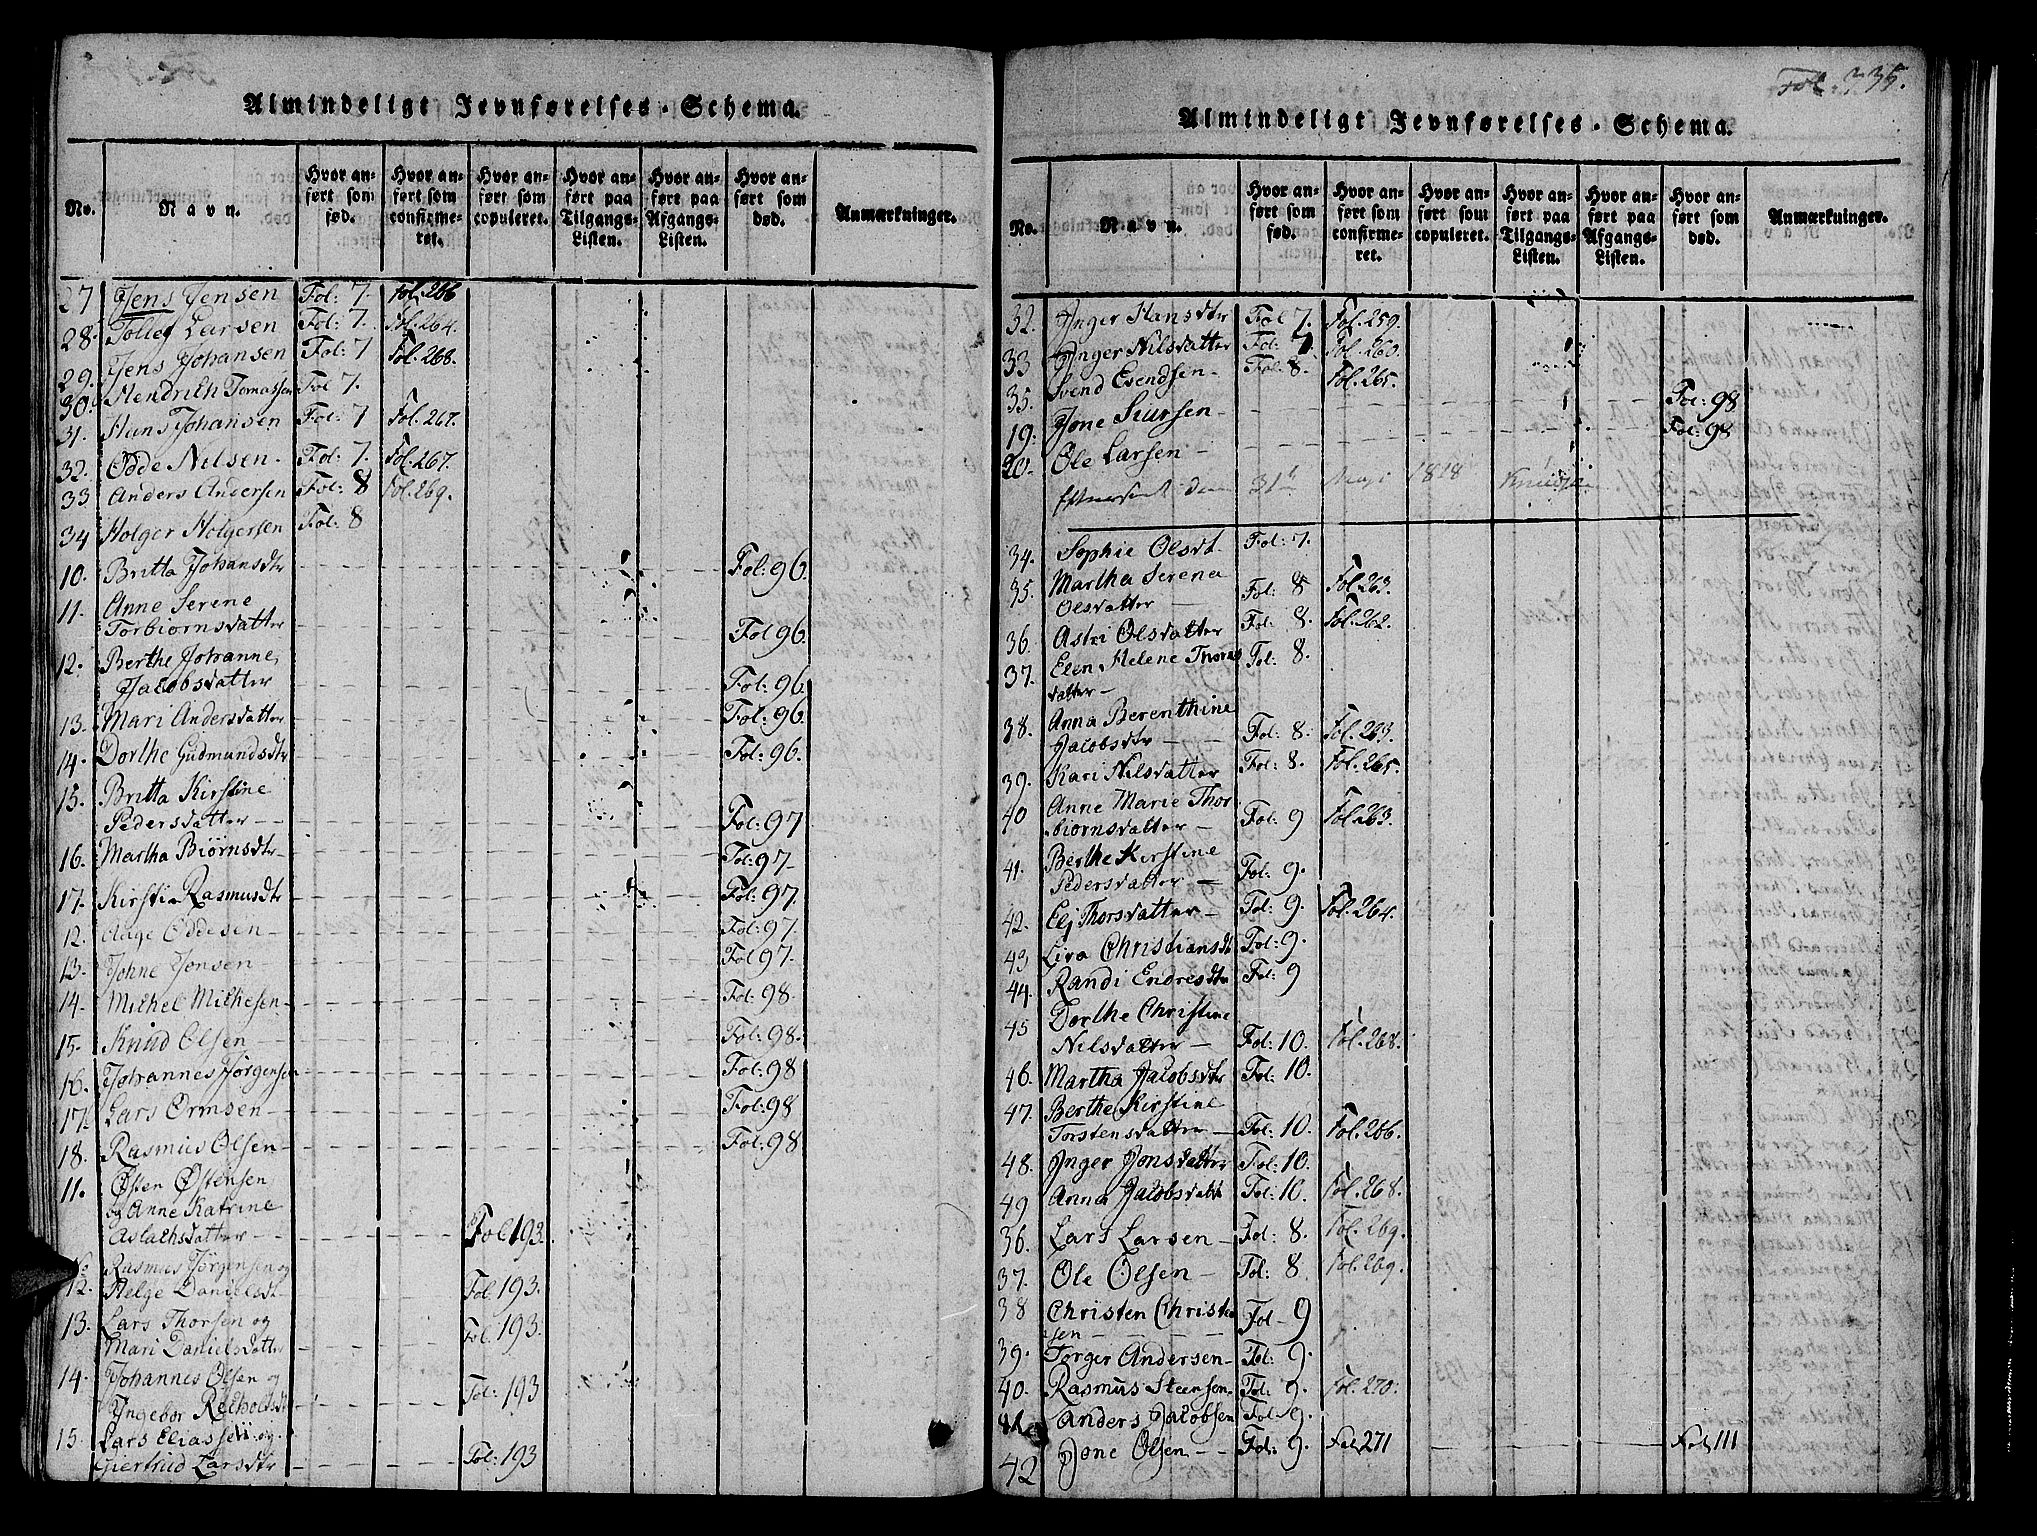 Almindeligt Jevnførelses-Schema.
No. Navn. Hvor anført som fød. Hvor anført som confirmeret. Hvor anført som copuleret. Hvor anført paa Tilgangs-Listen. Hvor anført paa Afgangs-Listen. Hvor anført som død. Anmærkninger.
27 Jens Jensen Fol: 7. Fol. 266
28. Tollef Larsen Fol: 7. Fol. 264.
29. Jens Johansen Fol: 7 Fol. 268.
30. Hendrich Tomassen Fol 7.
31. Hans Johansen Fol: 7 Fol. 267.
32. Odde Nilsen - Fol: 7. Fol. 267.
33 Anders Andersen Fol: 8 Fol. 269.
34 Holger Holgersen Fol: 8
10. Britta Johansdtr Fol: 96.
11. Anne Serene
Torbiørnsdatter Fol 96.
12. Berthe Johanne
Jacobsdatter Fol: 96
13. Mari Andersdatter Fol: 96.
14. Dorthe Gudmundsdtr Fol: 96.
15. Britta Kirstine
Pedersdatter - - Fol: 97
16. Martha Biørnsdtr - Fol: 97 -
17. Kirsti Rasmusdtr Fol: 97.
12. Aage Oddesen - Fol: 97.
13. Johne Jonsen - Fol 97.
14. Michel Michesen - Fol: 98.
15. Knud Olsen - Fol: 98.
16. Johannes Jørgensen Fol: 98
17. Lars Ormsen - Fol: 98
18. Rasmus Olsen - Fol: 98
11. Østen Østensen
og Anne Katrine
Aslachsdatter - - Fol 193.
Rasmus Jørgensen og
12. Helge Danielsdt - Fol 193.
13. Lars Thorsen og
Mari Danielsdatter Fol. 193.
14. Johannes Olsen og
Ingebor Reiholdsdt Fol: 193
15. Lars Eliassen og
Giertrud Larsdtr Fol: 193
Fol. 335.
Almindeligt Jevnførelses-Schema.
No. Navn. Hvor anført som fød. Hvor anført som confirmeret. Hvor anført som copuleret. Hvor anført paa Tilgangs-Listen. Hvor anført paa Afgangs-Listen. Hvor anført som død. Anmærkninger.
32. Inger Hansdtr Fol 7. Fol. 259.
33 Inger Nilsdatter Fol: 7 Fol. 260.
35. Svend Evendsen - Fol: 8. Fol. 265.
19. Jone Siursen - Fol: 98
20. Ole Larsen - Fol: 98
Efterseet den 31te Maji 1818
34. Sophie Olsdt. Fol: 7.
35. Martha Serena
Olsdatter - Fol: 8 Fol. 263.
36. Astri Olsdatter Fol: 8. Fol. 262.
37. Elen Helene Thoras
datter - Fol: 8.
38. Anna Berenthine
Jacobsdtr - Fol: 8. Fol. 263.
39. Kari Nilsdatter Fol: 8. Fol. 265.
40 Anne Marie Thor
biørnsdatter - Fol: 9 Fol. 263.
41. Berthe Kirstine
Pedersdatter - Fol: 9.
42. Eli Thorsdatter - Fol: 9. Fol. 264.
43 Liva Christiansdt Fol: 9.
44. Randi Endresdtr Fol: 9
45 Dorthe Christine
Nilsdatter - Fol: 10. Fol. 268.
46. Martha Jacobsdtr Fol: 10.
47. Berthe Kirstine
Torstensdatter - Fol: 10. Fol. 266.
48. Inger Jonsdatter Fol: 10.
49 Anna Jacobsdatt Fol: 10. Fol. 268.
36. Lars Larsen - Fol: 8. Fol. 269.
37. Ole Olsen - Fol: 8. Fol. 269.
38 Christen Christen
sen - Fol - 9
39. Torger Andersen - Fol: 9.
40. Rasmus Steensen Fol: 9. Fol. 270.
41 Anders Jacobsen Fol: 9.
42 Jone Olsen - - Fol: 9. Fol 271 Fol 111